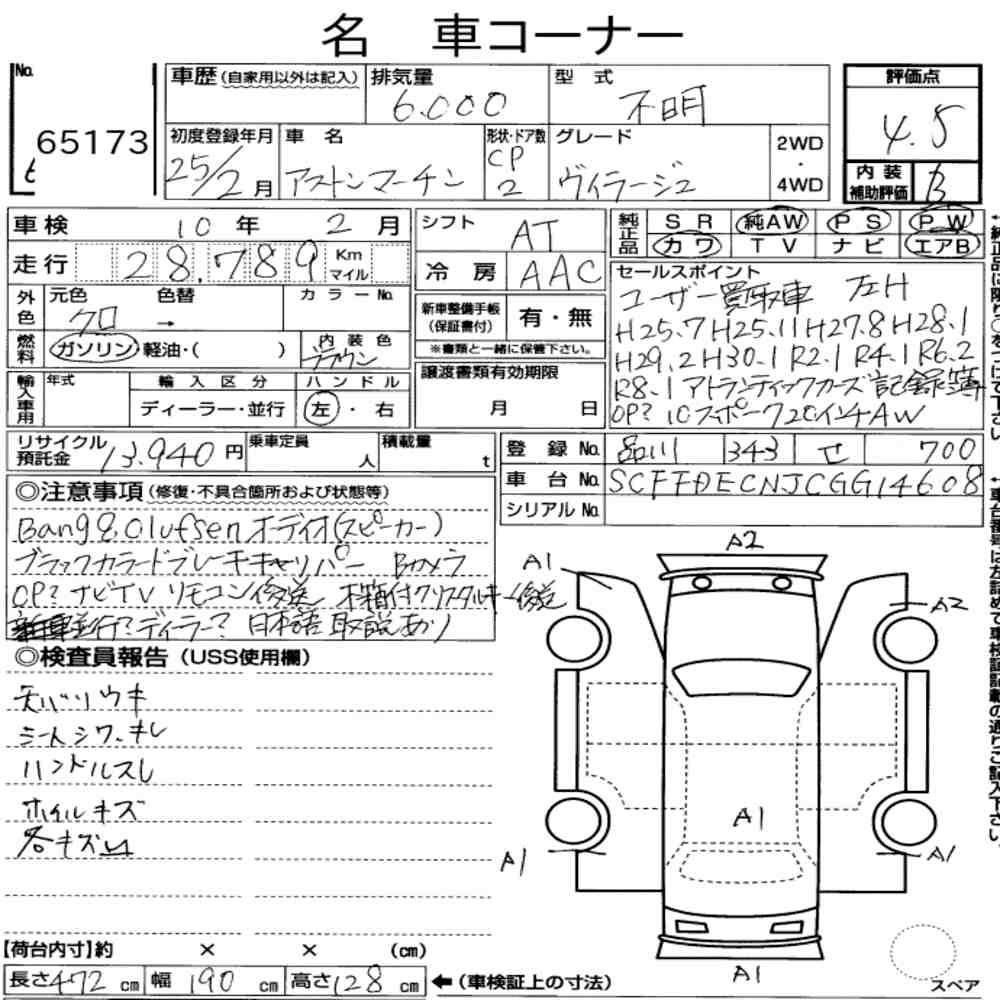 名 車コーナー
No.
65173
t
車歴 (自家用以外は記入)
排気量
6.000
型 式
不明
評価点
4.5
初度登録年月
25/2月
車 名
アストンマーチン
形状・ドア数
CP
2
グレード
ヴィラージュ
2WD
・
4WD
内 装
補助評価
B
車検 10年 2月
シフト
AT
純正品
SR 純AW PS PW
カワ TV ナビ エアB
走行 28,789 Km
マイル
冷 房 AAC
外色
元色 色替 カラーNo.
クロ →
新車整備手帳
(保証書付)
有・無
※書類と一緒に保管下さい。
セールスポイント
ユーザー買取車 左H
H25.7 H25.11 H27.8 H28.1
H29.2 H30.1 R2.1 R4.1 R6.2
R8.1 アトランティックカーズ 記録簿
OP? 10スポーク20インチAW
燃料
ガソリン・軽油・( )
内 装 色
ブラウン
輸入車用
年式
輸 入 区 分
ディーラー・並行
ハ ン ド ル
左・右
譲渡書類有効期限
月 日
リサイクル
預託金
13.940円
乗車定員
人
積載量
t
登 録 No. 品川 343 せ 700
車 台 No. SCFFDECNJCGG14608
シリアル No.
◎注意事項 (修復・不具合箇所および状態等)
Bang&Olufsenオーディオ(スピーカー)
ブラックカラードブレーキキャリパー Bカメラ
OP? ナビTV リモコン後送 木箱付クリスタルキー後送
並行?ディーラー? 日本語取説あり
◎検査員報告 (USS使用欄)
シートシワ、キレ
ハンドルスレ
ホイルキズ
各キズ凹
A2
A1
A2
A1
A1
A1
A1
スペア
【荷台内寸】約 × × (cm)
長さ472cm 幅190cm 高さ128cm ←(車検証上の寸法)